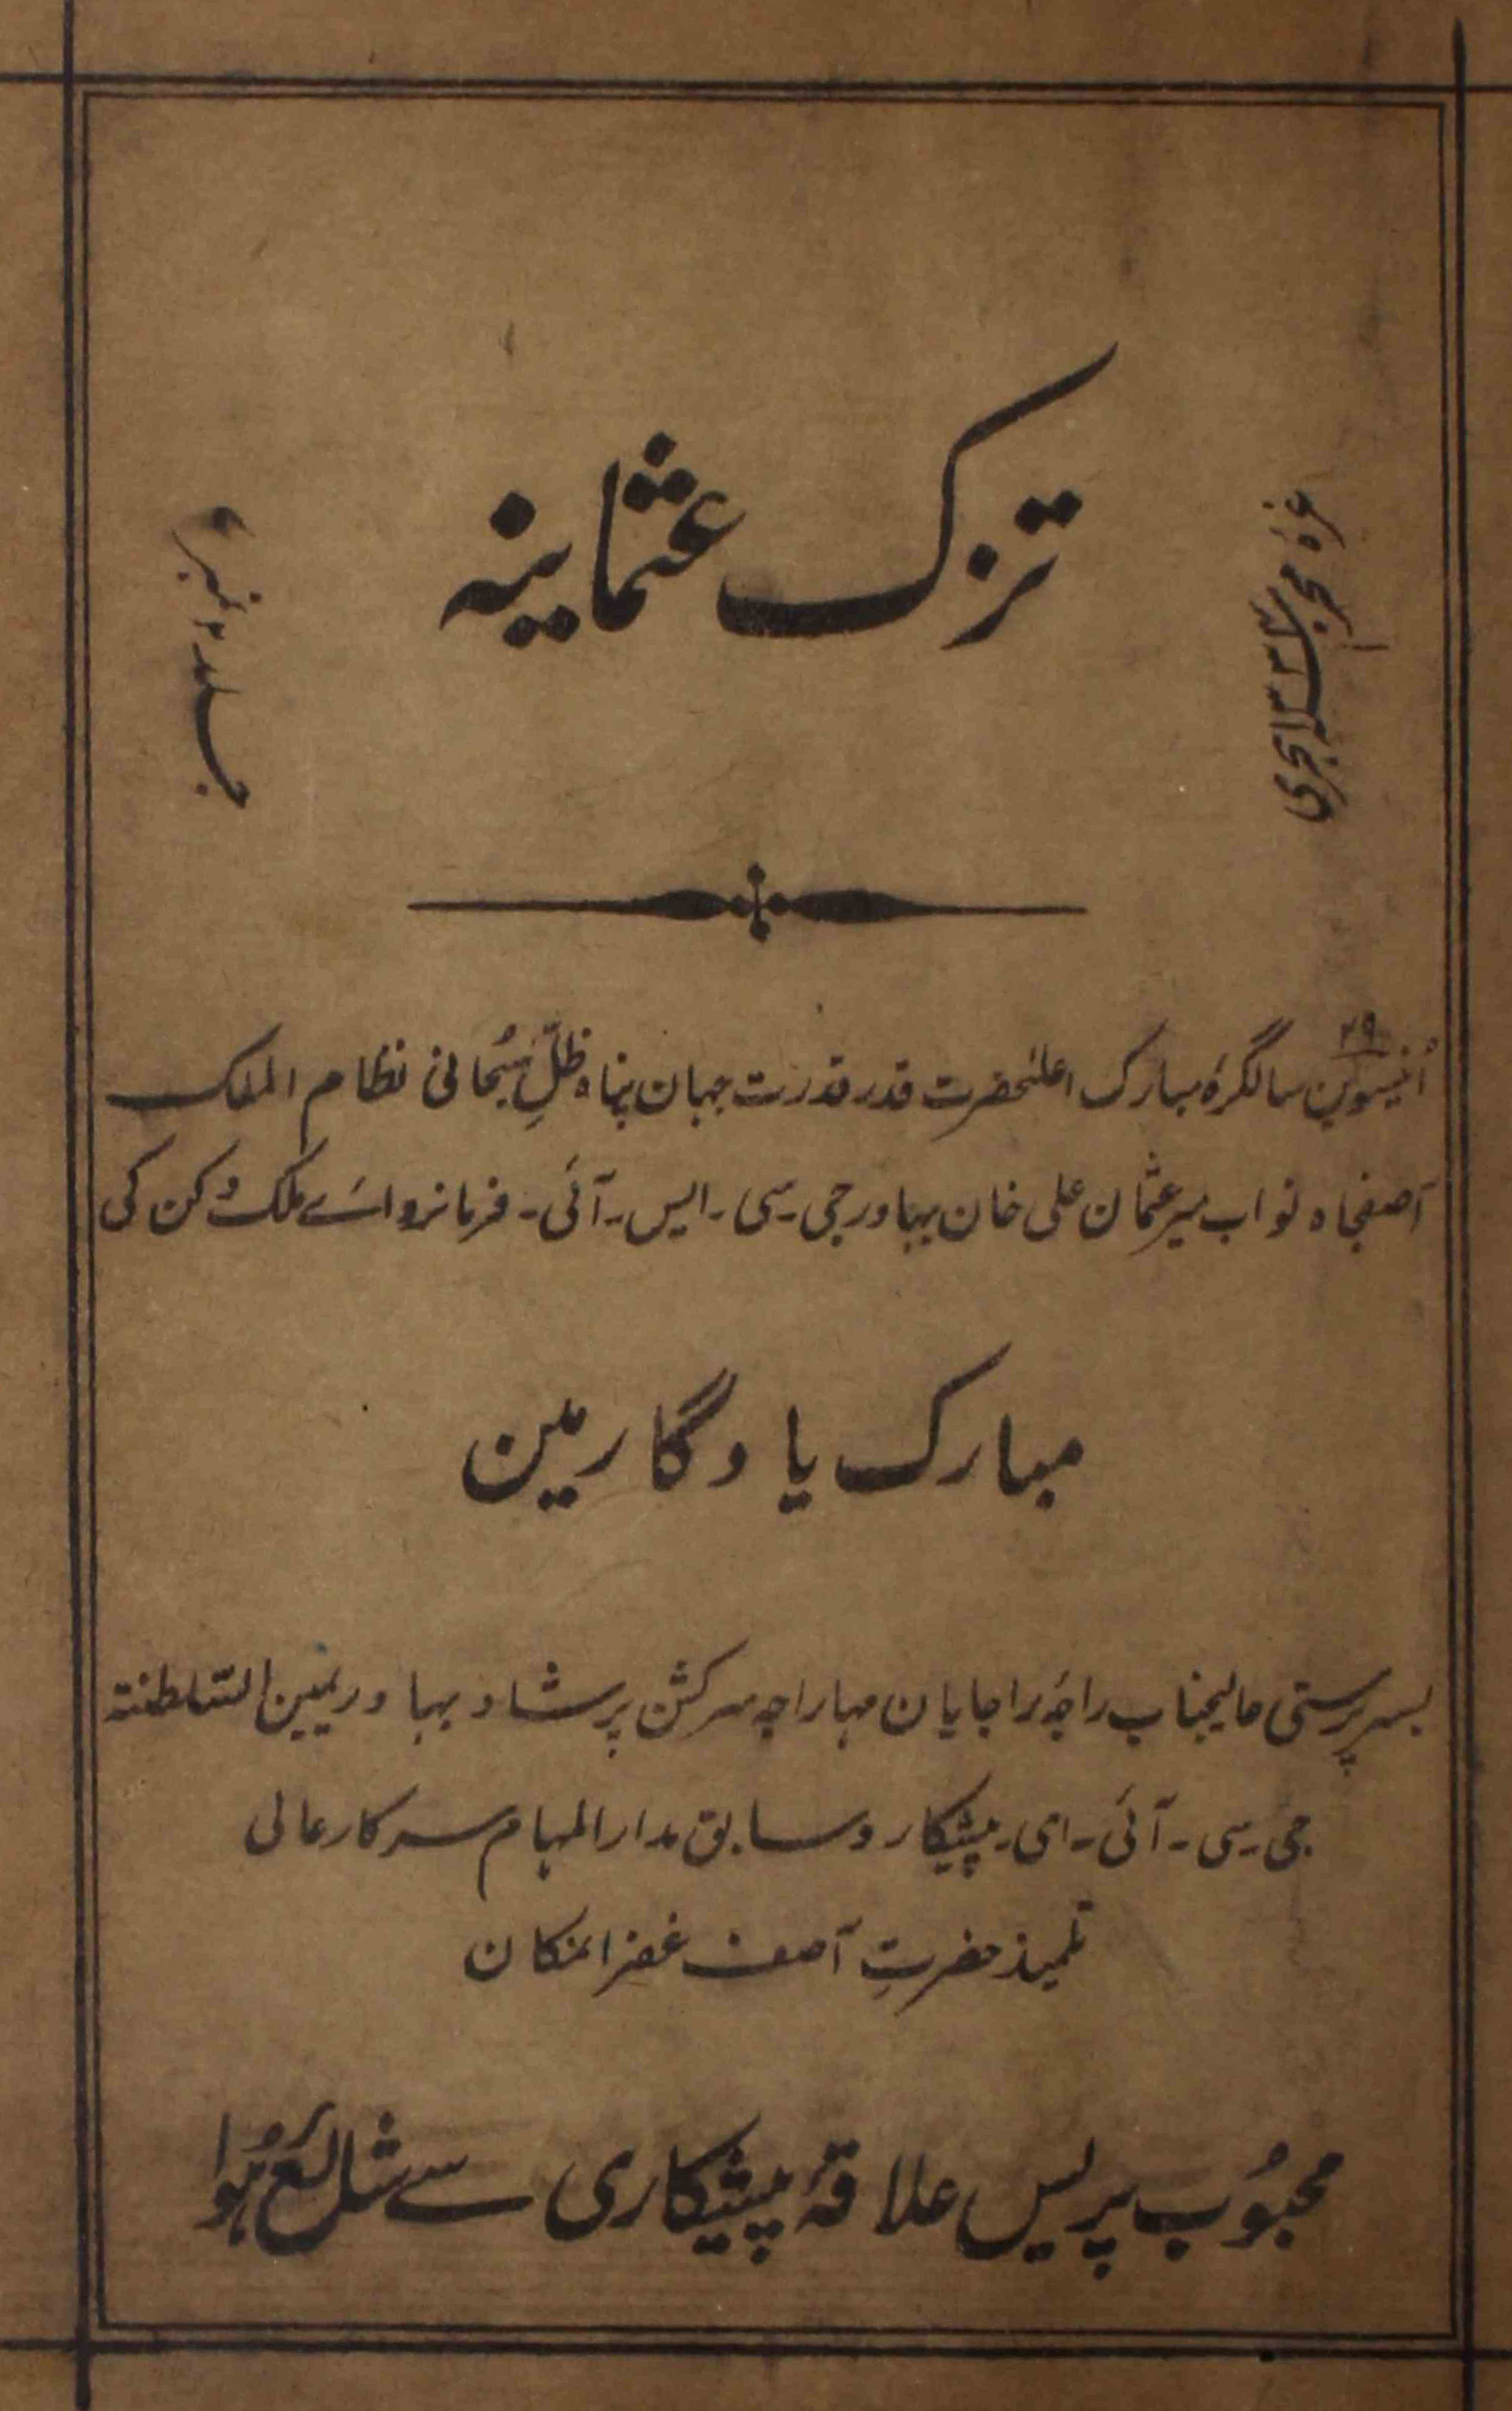 تزک عثمانیہ
غرہ محرم سنہ ۱۳۳۲ ہجری
جلد ۲ نمبر
۲۹
اُنتیسوین سالگرہ مبارک اعلیٰحضرت قدر قدرت جہان پناہ ظلِّ سُبحانی نظام الملک
آصفجاہ نواب میر عثمان علی خان بہادر جی۔سی۔ایس۔آئی۔ فرمانروائے ملک دکن کی
مبارک یادگار مین
بسرپرستی عالیجناب راجۂ راجایان مہاراجہ سر کشن پرشاد بہادر یمین السّلطنۃ
جی۔سی۔آئی۔ای۔پیشکار و سابق مدار المہام سرکار عالی
تلمیذ حضرتِ آصف غفرانمکان
محبُوب پریس علاقۂ پیشکاری سے شائع ہُوا